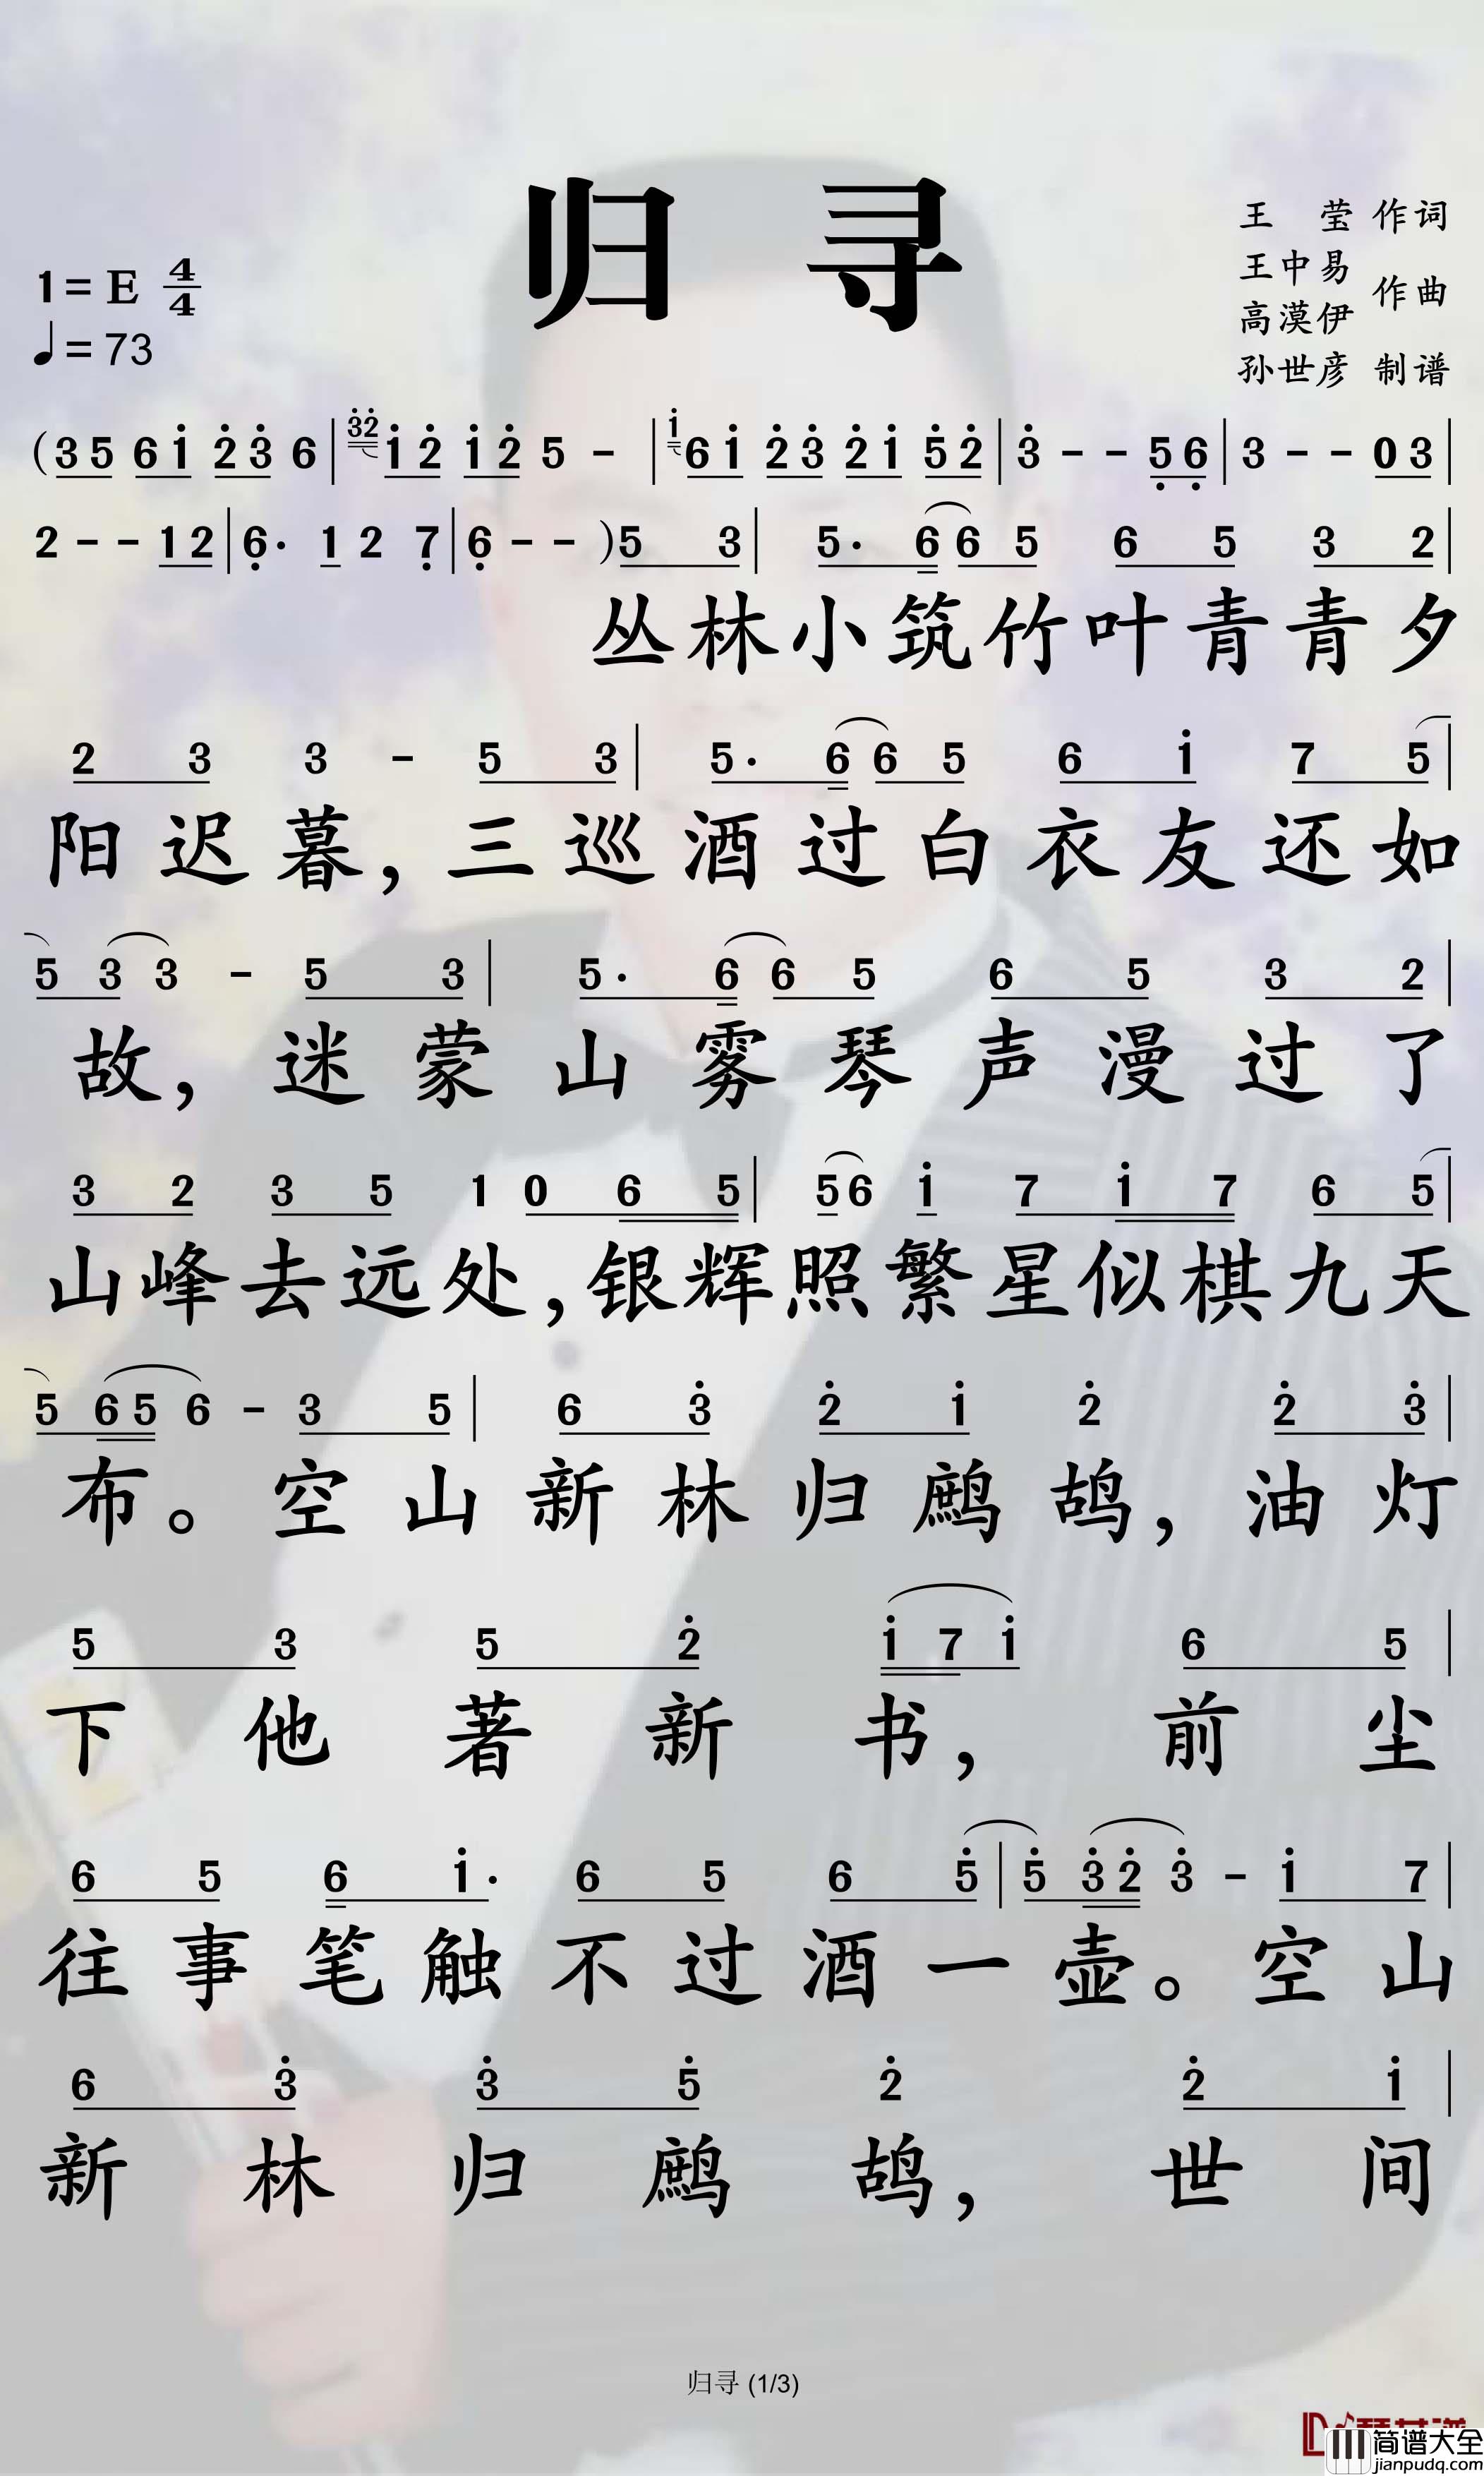 归 寻
王 莹 作词
王中易
高漠伊 作曲
孙世彦 制谱
1= E 4/4
♩= 73
(35 6i̇ 2̇3̇ 6 | 3̇2̇ i̇2̇ i̇2̇ 5 - | i̇ 6i̇ 2̇3̇ 2̇i̇ 5̇2̇ | 3̇ - - 5̣6̣ | 3 - - 03 |
2 - - 12 | 6̣· 1 2 7̣ | 6̣ - - )5 3 | 5· 6 6 5 6 5 3 2 |
丛林小筑竹叶青青夕
2 3 3 - 5 3 | 5· 6 6 5 6 i̇ 7 5 |
阳迟暮,三巡酒过白衣友还如
5 3 3 - 5 3 | 5· 6 6 5 6 5 3 2 |
故,迷蒙山雾琴声漫过了
3 2 3 5 1 0 6 5 | 5 6 i̇ 7 i̇ 7 6 5 |
山峰去远处,银辉照繁星似棋九天
5 6 5 6 - 3 5 | 6 3̇ 2̇ i̇ 2̇ 2̇ 3̇ |
布。空山新林归鹧鸪,油灯
5 3 5 2̇ i̇ 7 i̇ 6 5 |
下他著新书,前尘
6 5 6 i̇· 6 5 6 5̇ | 5̇ 3̇ 2̇ 3̇ - i̇ 7 |
往事笔触不过酒一壶。空山
6 3̇ 3̇ 5̇ 2̇ 2̇ i̇ |
新林归鹧鸪,世间
归寻 (1/3)
简谱大全
jianpudq.com